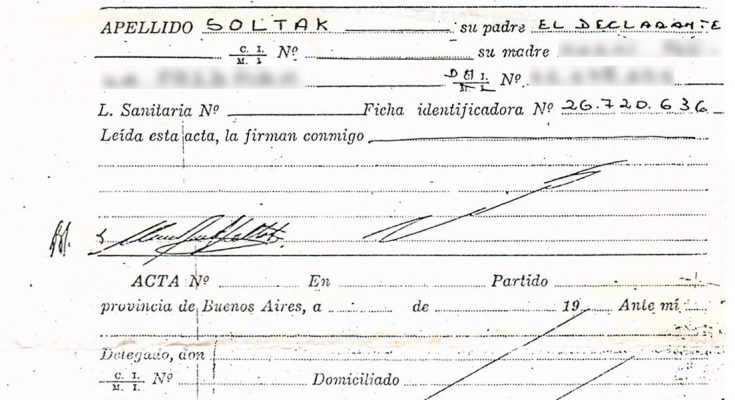 APELLIDO SOLTAK su padre EL DECLARANTE
C. I. M. I. Nº su madre
D N I. M. I. Nº
L. Sanitaria Nº Ficha identificadora Nº 26.720.636
Leída esta acta, la firman conmigo
ACTA Nº En Partido
provincia de Buenos Aires, a de 19 Ante mí,
Delegado, don
C. I. M. I. Nº Domiciliado